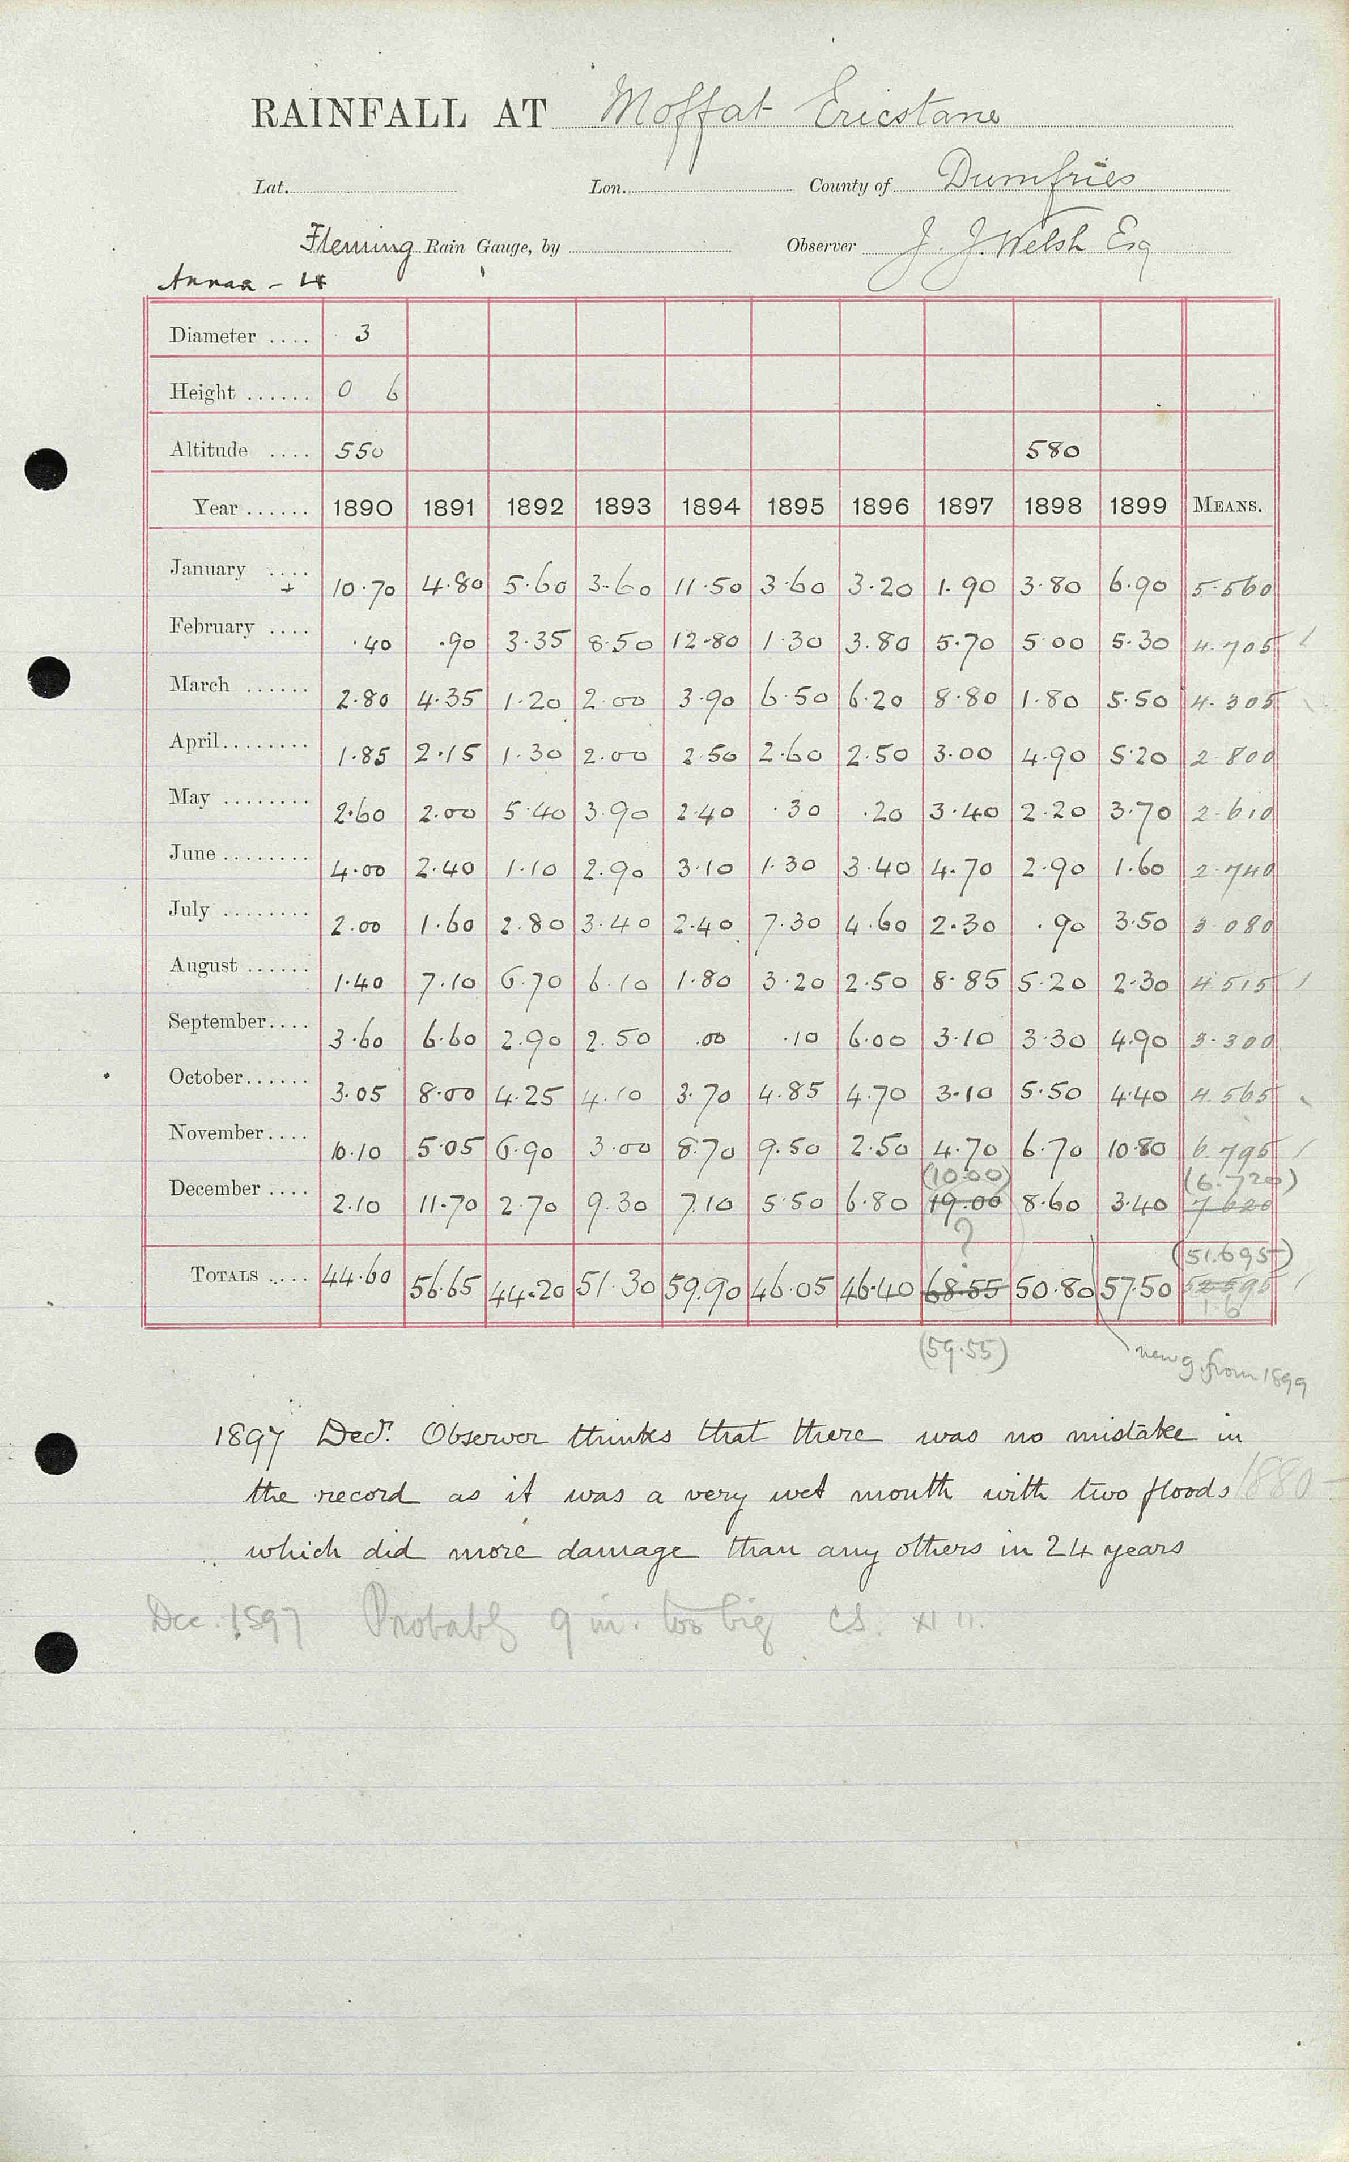 RAINFALL AT Moffat Ericstane
Lat. Lon. County of Dumfries
Fleming Rain Gauge, by Observer J. J. Welsh Esq
Annan - 4
Diameter .... 3
Height ...... 0 6
Altitude .... 550 580
Year ...... 1890 1891 1892 1893 1894 1895 1896 1897 1898 1899 MEANS.
January .... + 10.70 4.80 5.60 3.60 11.50 3.60 3.20 1.90 3.80 6.90 5.560
February .... .40 .90 3.35 8.50 12.80 1.30 3.80 5.70 5.00 5.30 4.705
March ...... 2.80 4.35 1.20 2.00 3.90 6.50 6.20 8.80 1.80 5.50 4.305
April........ 1.85 2.15 1.30 2.00 2.50 2.60 2.50 3.00 4.90 5.20 2.800
May ........ 2.60 2.00 5.40 3.90 2.40 .30 .20 3.40 2.20 3.70 2.610
June ........ 4.00 2.40 1.10 2.90 3.10 1.30 3.40 4.70 2.90 1.60 2.740
July ........ 2.00 1.60 2.80 3.40 2.40 7.30 4.60 2.30 .90 3.50 3.080
August ...... 1.40 7.10 6.70 6.10 1.80 3.20 2.50 8.85 5.20 2.30 4.515
September.... 3.60 6.60 2.90 2.50 .00 .10 6.00 3.10 3.30 4.90 3.300
October...... 3.05 8.00 4.25 4.10 3.70 4.85 4.70 3.10 5.50 4.40 4.565
November.... 10.10 5.05 6.90 3.00 8.70 9.50 2.50 4.70 6.70 10.80 6.795
(10.00) (6.720)
December .... 2.10 11.70 2.70 9.30 7.10 5.50 6.80 19.00 8.60 3.40 7.620
?
(51.695)
TOTALS .... 44.60 56.65 44.20 51.30 59.90 46.05 46.40 68.55 50.80 57.50 52.595
1.6
(59.55) new g. from 1899
1897 Decr. Observer thinks that there was no mistake in
the record as it was a very wet month with two floods 1880-
which did more damage than any others in 24 years
Dec. 1897 Probably 9 in. too big CS. XI 11.